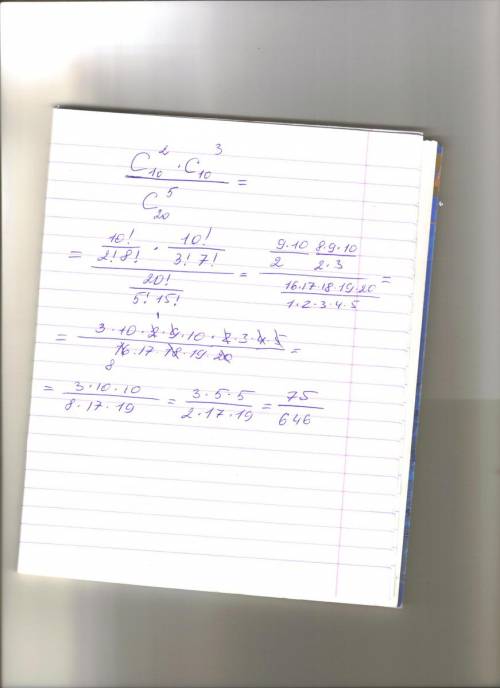 C₁₀² · C₁₀³ / C₂₀⁵ =
= (10!/(2!8!) · 10!/(3!7!)) / (20!/(5!·15!)) = (9·10/2 · 8·9·10/(2·3)) / (16·17·18·19·20/(1·2·3·4·5)) =
= 3·10·2·9·10·2·3·4·5 / (16·17·18·19·20) =
= 3·10·10 / (8·17·19) = 3·5·5 / (2·17·19) = 75/646